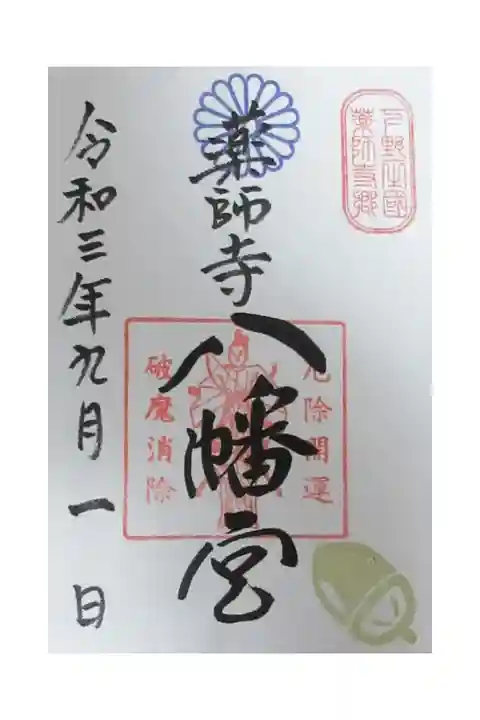 下野国
薬師寺郷
薬師寺八幡宮
厄除開運
破魔消除
令和三年九月一日